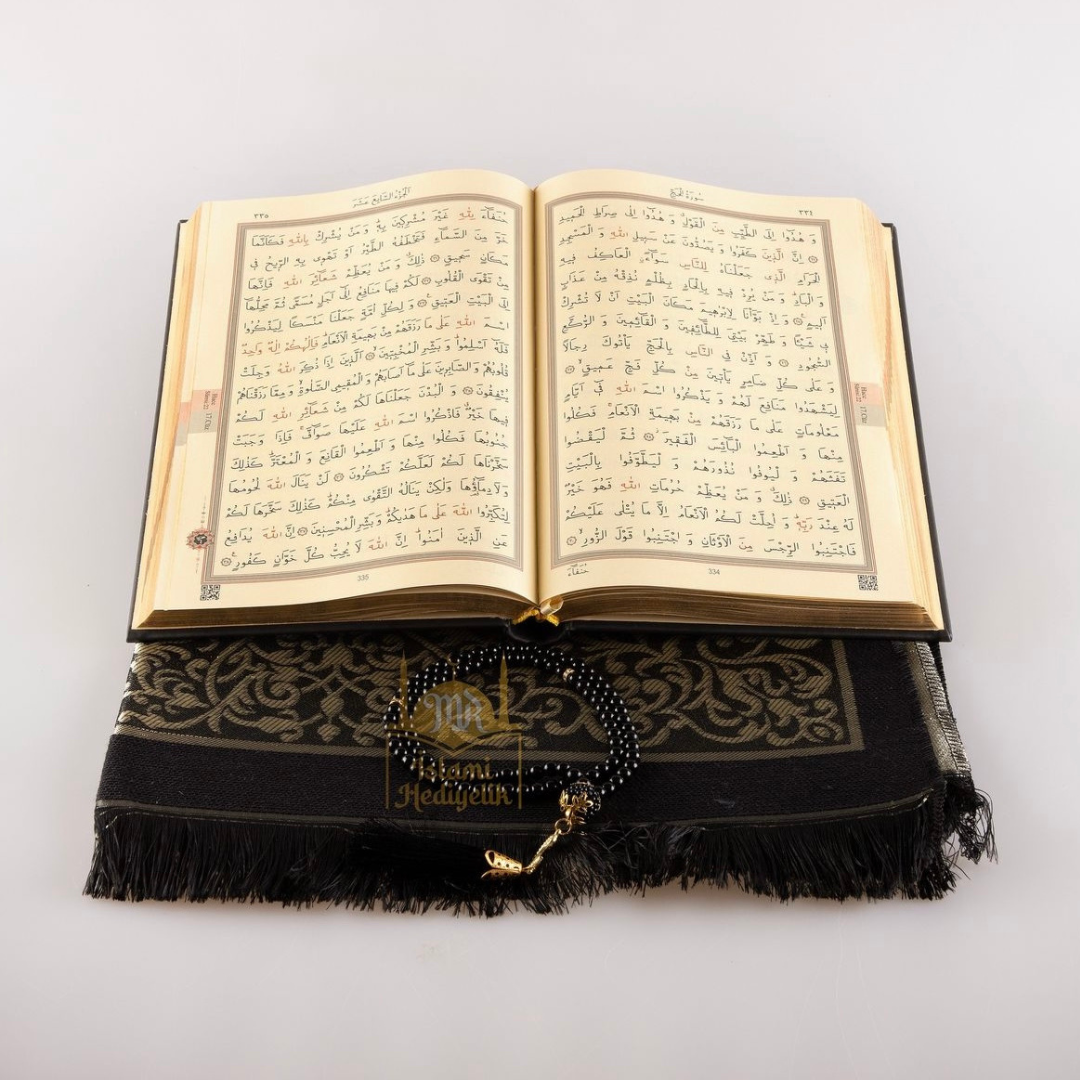 ٣٣٤
سُورَةُ الْحَجِّ
وَ هُدُٓوا اِلَى الطَّيِّبِ مِنَ الْقَوْلِۚ وَ هُدُٓوا اِلٰى صِرَاطِ الْحَمٖيدِ
﴿٢٤﴾ اِنَّ الَّذٖينَ كَفَرُوا وَ يَصُدُّونَ عَنْ سَبٖيلِ اللّٰهِ وَ الْمَسْجِدِ
الْحَرَامِ الَّذٖي جَعَلْنَاهُ لِلنَّاسِ سَوَٓاءًۨ الْعَاكِفُ فٖيهِ
وَ الْبَادِۜ وَ مَنْ يُرِدْ فٖيهِ بِاِلْحَادٍ بِظُلْمٍ نُذِقْهُ مِنْ عَذَابٍ
اَلٖيمٍ ﴿٢٥﴾ وَ اِذْ بَوَّأْنَا لِاِبْرٰهٖيمَ مَكَانَ الْبَيْتِ اَنْ لَا تُشْرِكْ
بٖي شَيْـًٔا وَ طَهِّرْ بَيْتِيَ لِلطَّٓائِفٖينَ وَ الْقَٓائِمٖينَ وَ الرُّكَّعِ
السُّجُودِ ﴿٢٦﴾ وَ اَذِّنْ فِي النَّاسِ بِالْحَجِّ يَأْتُوكَ رِجَالًا
وَ عَلٰى كُلِّ ضَامِرٍ يَأْتٖينَ مِنْ كُلِّ فَجٍّ عَمٖيقٍۙ ﴿٢٧﴾
لِيَشْهَدُوا مَنَافِعَ لَهُمْ وَ يَذْكُرُوا اسْمَ اللّٰهِ فٖٓي اَيَّامٍ
مَعْلُومَاتٍ عَلٰى مَا رَزَقَهُمْ مِنْ بَهٖيمَةِ الْاَنْعَامِۚ فَكُلُوا
مِنْهَا وَ اَطْعِمُوا الْبَٓائِسَ الْفَقٖيرَۘ ﴿٢٨﴾ ثُمَّ لْيَقْضُوا
تَفَثَهُمْ وَ لْيُوفُوا نُذُورَهُمْ وَ لْيَطَّوَّفُوا بِالْبَيْتِ
الْعَتٖيقِ ﴿٢٩﴾ ذٰلِكَۗ وَ مَنْ يُعَظِّمْ حُرُمَاتِ اللّٰهِ فَهُوَ خَيْرٌ
لَهُ عِنْدَ رَبِّهٖۜ وَ اُحِلَّتْ لَكُمُ الْاَنْعَامُ اِلَّا مَا يُتْلٰى عَلَيْكُمْ
فَاجْتَنِبُوا الرِّجْسَ مِنَ الْاَوْثَانِ وَ اجْتَنِبُوا قَوْلَ الزُّورِۙ ﴿٣٠﴾
حُنَفَٓاءَ
334
٣٣٥
اَلْجُزْءُ السَّابِعَ عَشَرَ
حُنَفَٓاءَ لِلّٰهِ غَيْرَ مُشْرِكٖينَ بِهٖۜ وَ مَنْ يُشْرِكْ بِاللّٰهِ فَكَاَنَّمَا
خَرَّ مِنَ السَّمَٓاءِ فَتَخْطَفُهُ الطَّيْرُ اَوْ تَهْوٖي بِهِ الرّٖيحُ فٖي
مَكَانٍ سَحٖيقٍ ﴿٣١﴾ ذٰلِكَۗ وَ مَنْ يُعَظِّمْ شَعَٓائِرَ اللّٰهِ فَاِنَّهَا
مِنْ تَقْوَى الْقُلُوبِ ﴿٣٢﴾ لَكُمْ فٖيهَا مَنَافِعُ اِلٰٓى اَجَلٍ مُسَمًّى ثُمَّ مَحِلُّهَٓا
اِلَى الْبَيْتِ الْعَتٖيقِ ﴿٣٣﴾ وَ لِكُلِّ اُمَّةٍ جَعَلْنَا مَنْسَكًا لِيَذْكُرُوا
اسْمَ اللّٰهِ عَلٰى مَا رَزَقَهُمْ مِنْ بَهٖيمَةِ الْاَنْعَامِۜ فَاِلٰهُكُمْ اِلٰهٌ وَاحِدٌ
فَلَهُٓ اَسْلِمُواۜ وَ بَشِّرِ الْمُخْبِتٖينَۙ ﴿٣٤﴾ اَلَّذٖينَ اِذَا ذُكِرَ اللّٰهُ وَجِلَتْ
قُلُوبُهُمْ وَ الصَّابِرٖينَ عَلٰى مَٓا اَصَابَهُمْ وَ الْمُقٖيمِي الصَّلٰوةِۙ وَ مِمَّا رَزَقْنَاهُمْ
يُنْفِقُونَ ﴿٣٥﴾ وَ الْبُدْنَ جَعَلْنَاهَا لَكُمْ مِنْ شَعَٓائِرِ اللّٰهِ لَكُمْ
فٖيهَا خَيْرٌۗ فَاذْكُرُوا اسْمَ اللّٰهِ عَلَيْهَا صَوَٓافَّۚ فَاِذَا وَجَبَتْ
جُنُوبُهَا فَكُلُوا مِنْهَا وَ اَطْعِمُوا الْقَانِعَ وَ الْمُعْتَرَّۜ كَذٰلِكَ
سَخَّرْنَاهَا لَكُمْ لَعَلَّكُمْ تَشْكُرُونَ ﴿٣٦﴾ لَنْ يَنَالَ اللّٰهَ لُحُومُهَا
وَلَا دِمَٓاؤُ۬هَا وَلٰكِنْ يَنَالُهُ التَّقْوٰى مِنْكُمْۜ كَذٰلِكَ سَخَّرَهَا لَكُمْ
لِتُكَبِّرُوا اللّٰهَ عَلٰى مَا هَدٰيكُمْۜ وَ بَشِّرِ الْمُحْسِنٖينَ ﴿٣٧﴾ اِنَّ اللّٰهَ يُدَافِعُ
عَنِ الَّذٖينَ اٰمَنُواۜ اِنَّ اللّٰهَ لَا يُحِبُّ كُلَّ خَوَّانٍ كَفُورٍ ﴿٣٨﴾
335
MA
İslami
Hediyelik